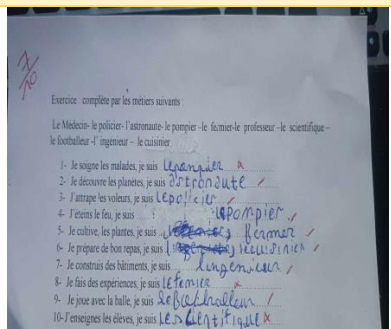 7/10
Exercice : complète par les métiers suivants :
Le Médecin- le policier- l'astronaute- le pompier -le fermier-le professeur –le scientifique –
le footballeur -l' ingénieur – le cuisinier
1- Je soigne les malades, je suis Lepompier x
2- Je découvre les planetes, je suis astronaute
3- J'attrape les voleurs, je suis Lepolicier
4- J'eteins le feu, je suis LePompier
5- Je cultive, les plantes, je suis fermer
6- Je prépare de bon repas, je suis lecuisinier
7- Je construis des bâtiments, je suis lingenieur
8- Je fais des expériences, je suis Lefemier x
9- Je joue avec la balle, je suis
10- J'enseignes les élèves, je suis x